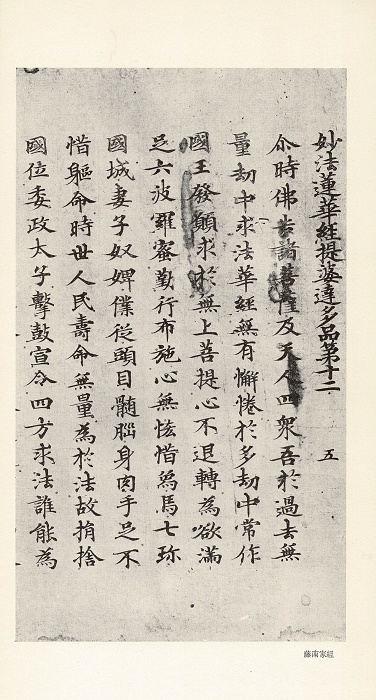 妙法蓮華經提婆達多品第十二 五
尒時佛告諸菩薩及天人四衆吾於過去無
量劫中求法華經無有懈惓於多劫中常作
國王發願求於無上菩提心不退轉為欲滿
足六波羅蜜勤行布施心無悋惜鳥馬七珎
國城妻子奴婢僕從頭目髓腦身肉手足不
惜軀命時世人民壽命無量為於法故捐捨
國位委政太子擊鼓宣令四方求法誰能為
藤南家経